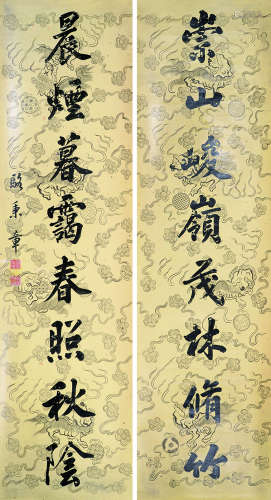 崇山峻嶺茂林脩竹
晨煙暮靄春煦秋陰
駱秉章